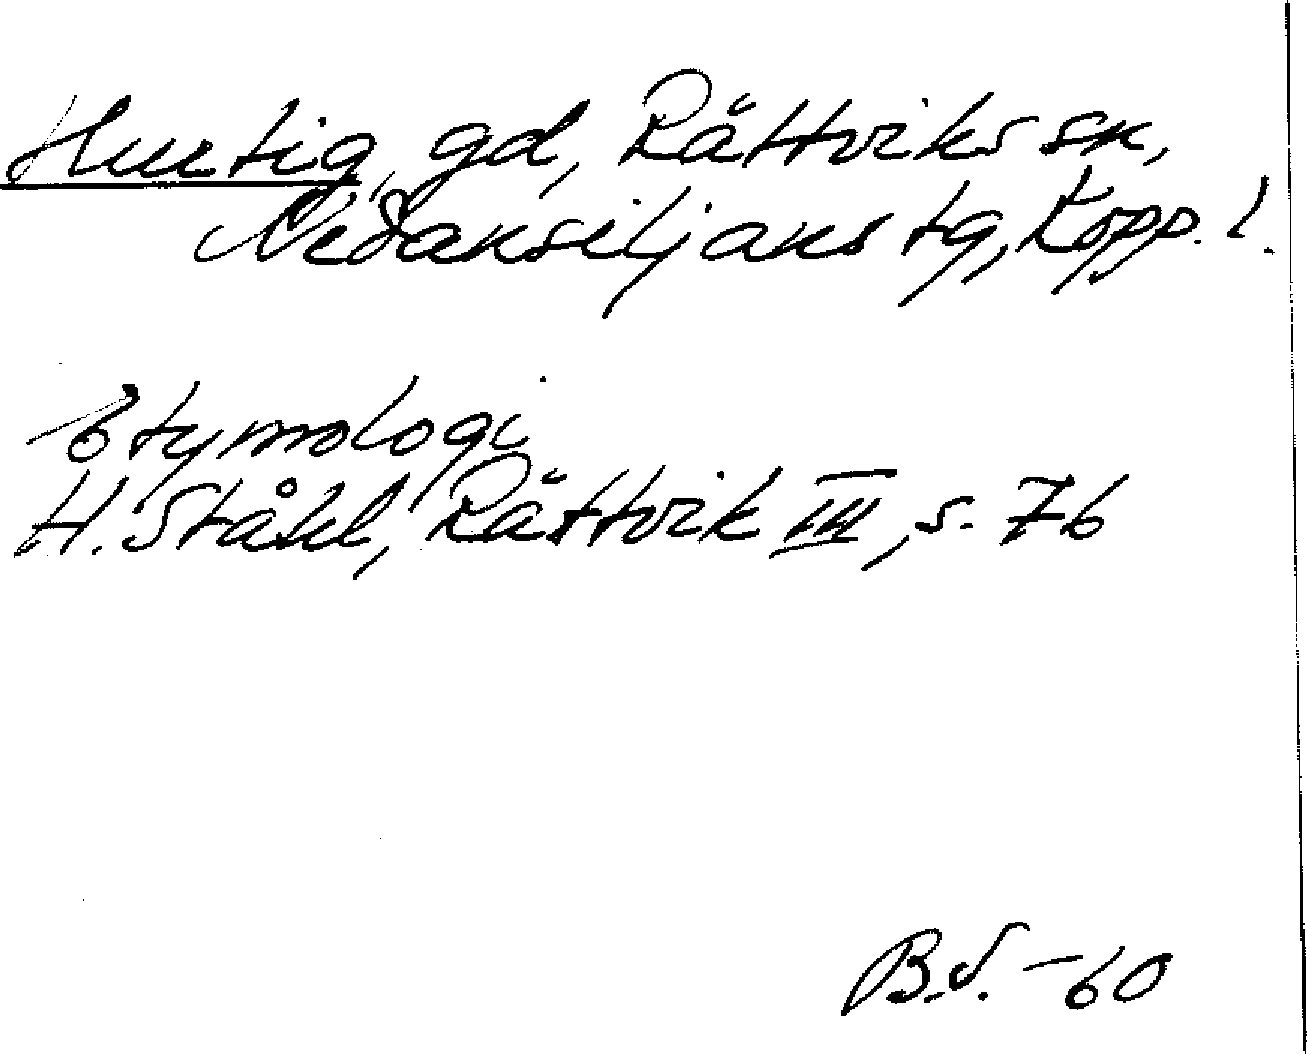 Hurtig, gd, Rättviks sn,
Nedansiljans tg, Kopp. l.
Etymologi
H. Ståhl, Rättvik III, s. 76
B.S. -60